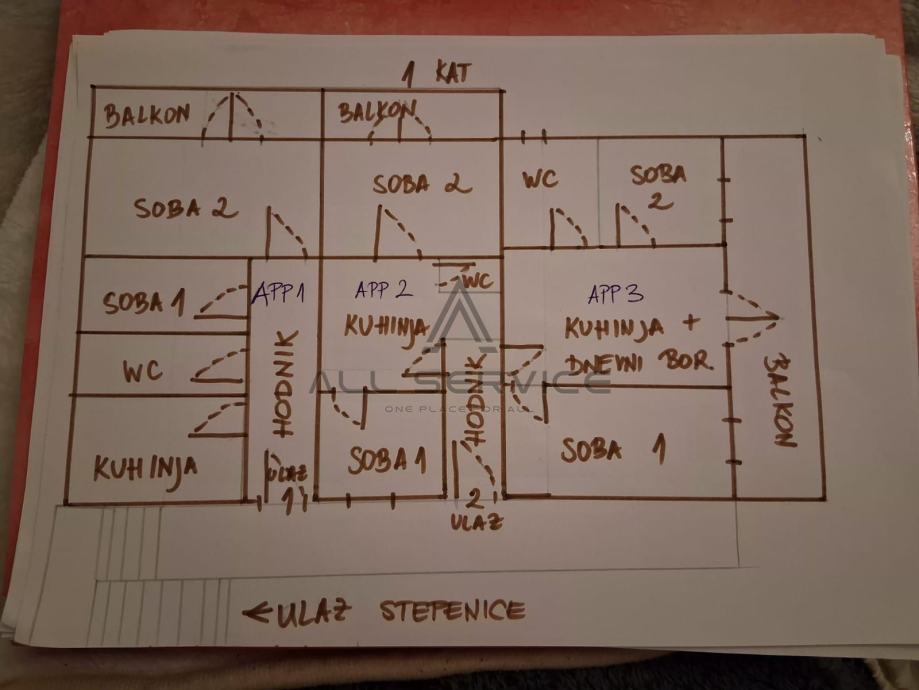 1 KAT
BALKON
BALKON
SOBA 2
SOBA 2
WC
SOBA
2
SOBA 1
APP 1
APP 2
WC
APP 3
KUHINJA
KUHINJA +
DNEVNI BOR.
HODNIK
WC
HODNIK
BALKON
ALL SERVICE
ONE PLACE FOR ALL
KUHINJA
ULAZ
1
SOBA 1
SOBA 1
2
ULAZ
← ULAZ STEPENICE